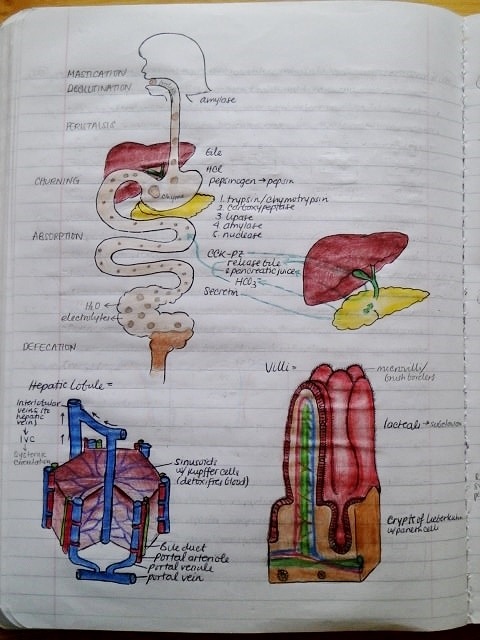 MASTICATION
DEGLUTINATION
amylase
PERISTALSIS
bile
HCl
CHURNING
pepsinogen → pepsin
chyme
1. trypsin/chymetrypsin
2. carboxypeptase
3. lipase
4. amylase
5. nuclease
ABSORPTION
CCK-PZ
release bile
& pancreatic juice
HCO₃⁻
Secretin
H₂O
electrolytes
DEFECATION
Hepatic Lobule =
Interlobular
veins (to
hepatic
vein)
↓
IVC
↓
Systemic
circulation
sinusoids
w/ kupffer cells
(detoxifies blood)
bile duct
portal arteriole
portal venule
portal vein
Villi =
microvilli/
brush borders
lacteals →
crypts of Lieberkuhn
w/ paneth cells